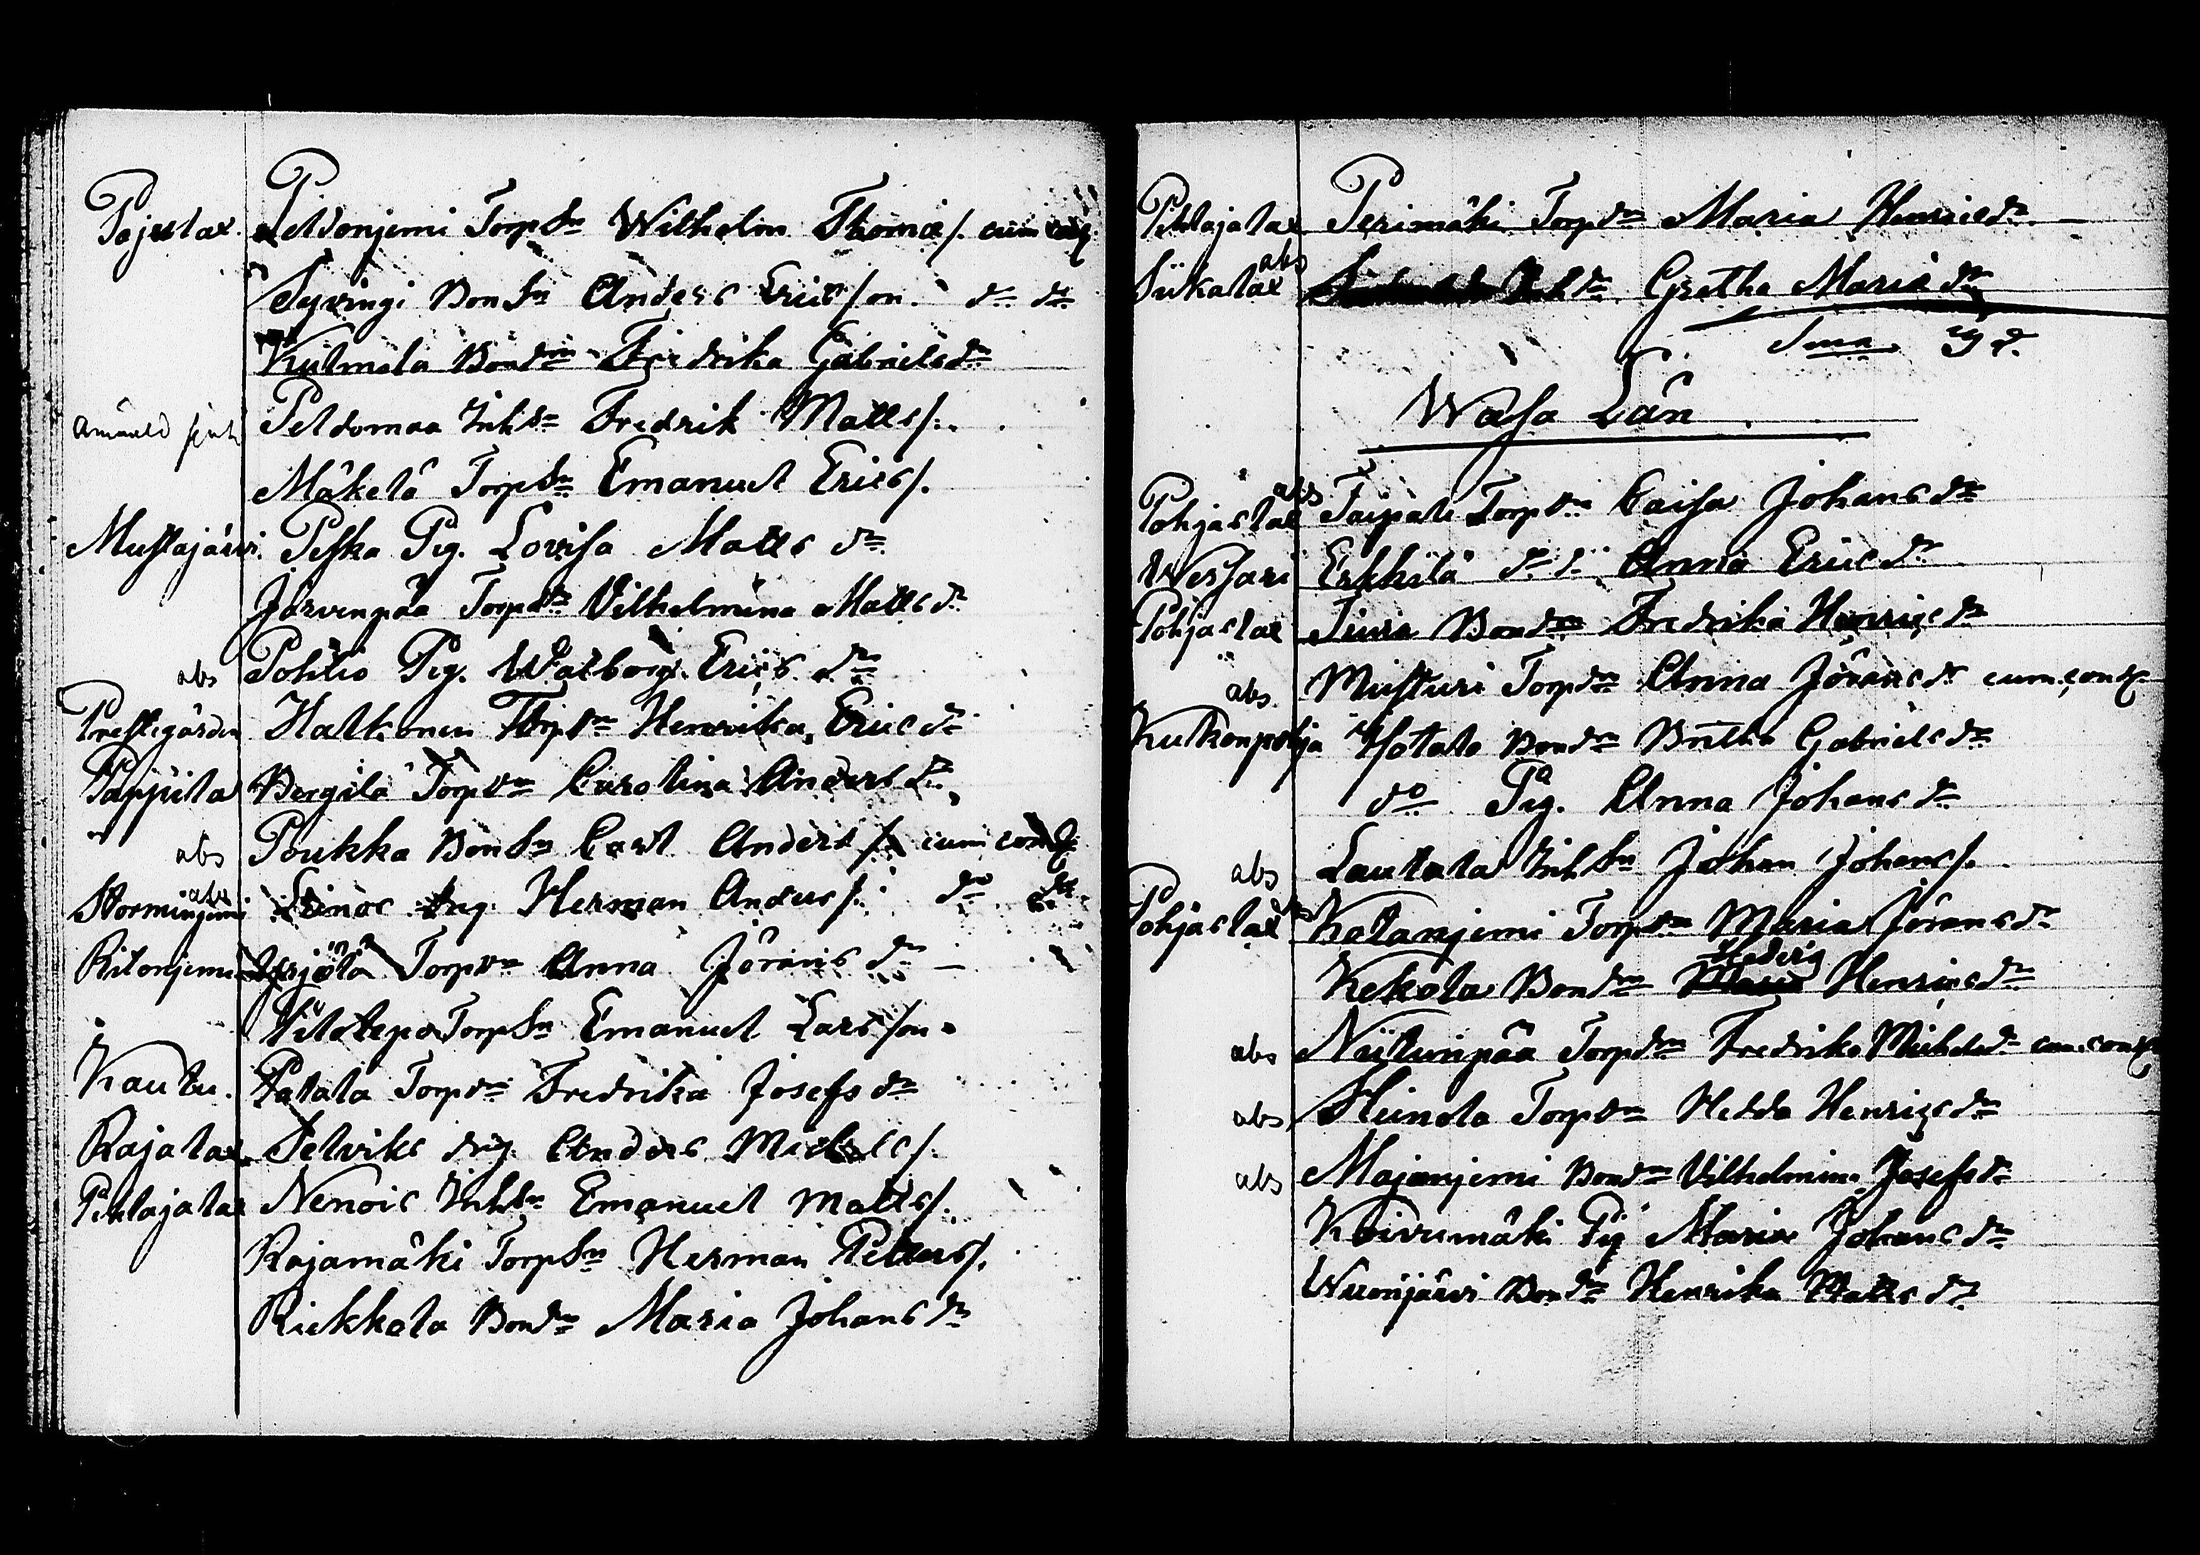 Pajuslax. Peldonjemi TorpSn Wilhelm Thomæ/. cum conj.
Syvingi BonSn Anders Ericsson. do do
Kulmala Bondrn Fredrika Gabrielsdr
Peldomaa InhSn Fredrik Matts/.
Mäkelä TorpSn Emanuel Erics/.
Mustajärvi. Peska Pig. Lovisa Matts dr
Järvenpää Torpdr Vilhelmina Mattsdr
abs Pohlio Pig. Walborg Erics dr
Prestegården Halkonen Torpdr Henrika Ericsdr
Pappila Bergilä Torpdr Carolina Andersdr
abs Poukka BonSn Carl Anders/. cum conj
Storminjemi abs Leinos drg Herman Anders/. do do
Ritonjemi Yrjölä Torpdr Anna Jörans dr
TorpSn Emanuel Larsson
Kautu. Patala Torpdr Fredrika Josefs dr
Rajalax Selviks drg. Anders Michels/.
Pihlajalax Nenois InhSn Emanuel Matts/.
Rajamäki TorpSn Herman Petters/.
Riekkola Bondr Maria Johansdr
Pihlajalax Perimäki Torpdr Maria Henricsdr
Siikalax abs Inhdr Gretha Maria dr
Sma
Wasa Län
Pohjaslax abs Taipale Torpdr Caisa Johansdr
Wessari Erkkilä do do Anna Ericsdr
Pohjaslax Bondr Fredrika Henricsdr
abs. Musturi Torpdr Anna Jöransdr cum conj
Kutkonpohja Hotala Bondr Britha Gabrielsdr
do Pig. Anna Johansdr
abs Lautala InhSn Johan Johans/.
Pohjaslax Kotanjemi Torpdr Maria Jöransdr
Hedvig
Kekola Bondr Maria Henricsdr
abs Niitunpää Torpdr Fredrika Michelsdr cum conj
abs Heinola Torpdr Hedda Henricsdr
abs Majanjemi Bondr Vilhelmina Josefsdr
Koivumäki Pig Maria Johansdr
Wuonjärvi Bondr Henrika Mattsdr